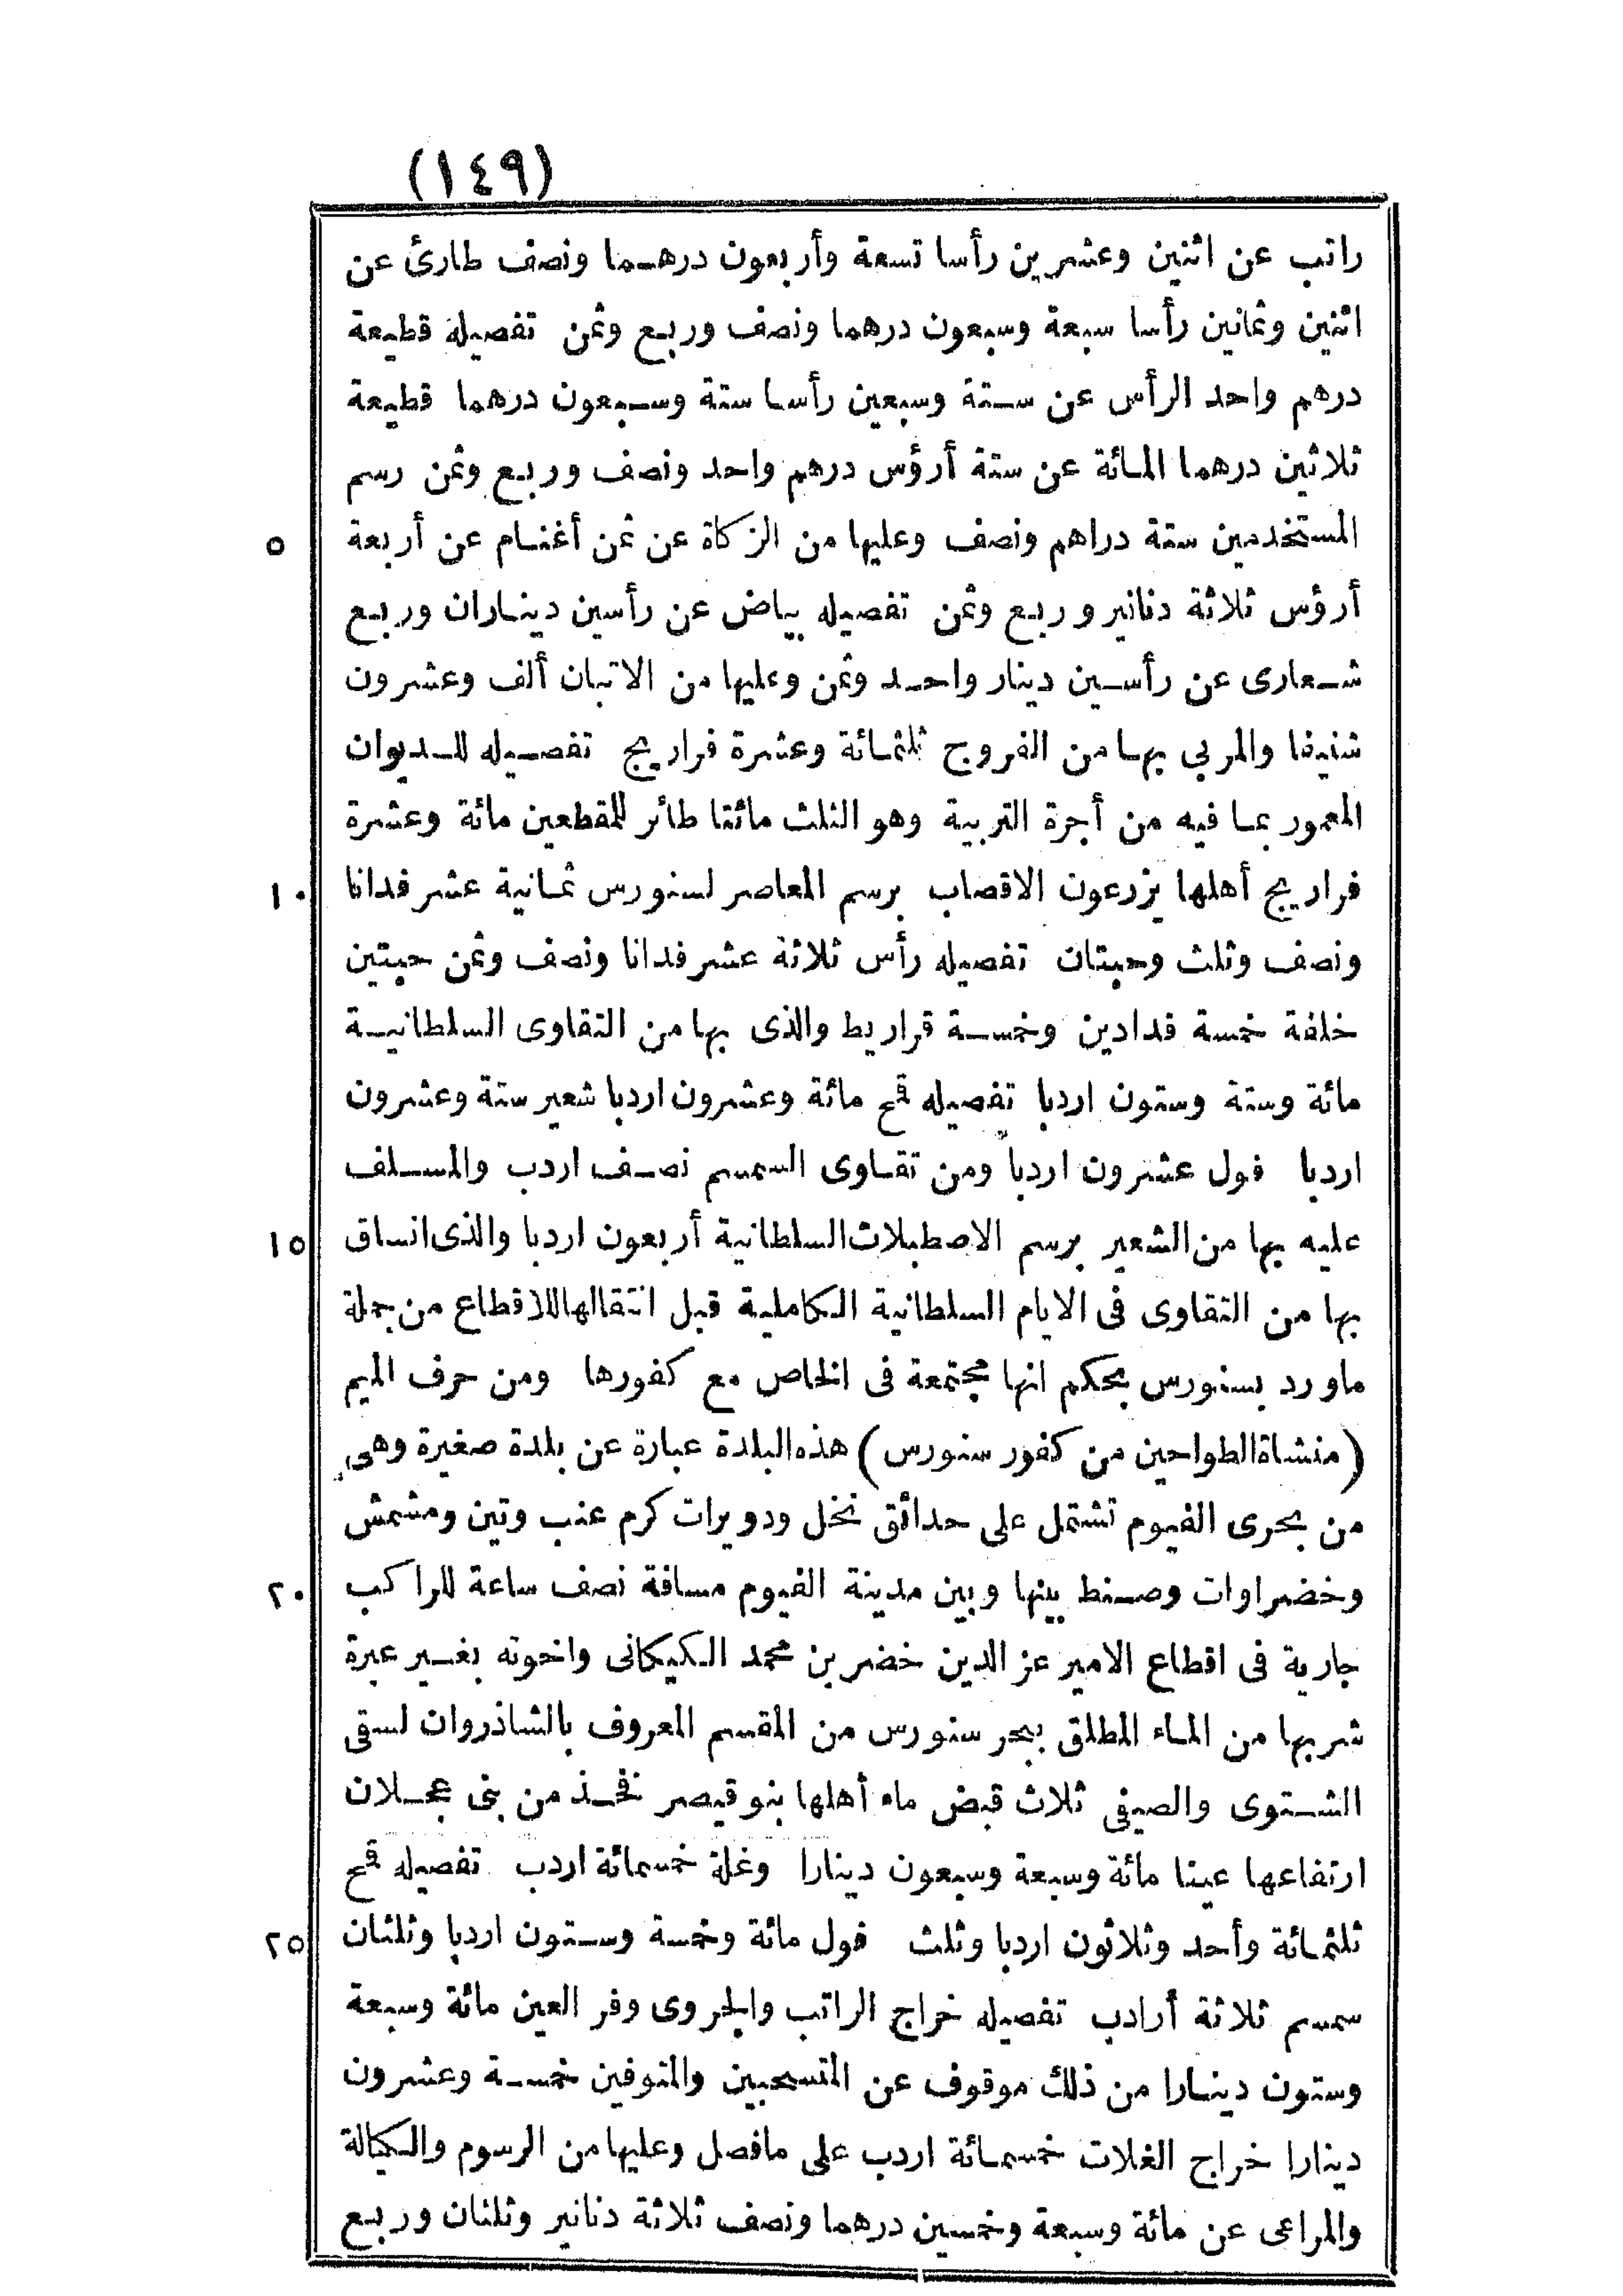 (١٤٩)
راتب عن اثنين وعشرين رأسا تسعة وأربعون درهما ونصف طارئ عن
اثنين وثمانين رأسا سبعة وسبعون درهما ونصف وربع وثمن تفصيله قطيعة
درهم واحد الرأس عن ستة وسبعين رأسا ستة وسبعون درهما قطيعة
ثلاثين درهما المائة عن ستة أرؤس درهم واحد ونصف وربع وثمن رسم
٥ المستخدمين ستة دراهم ونصف وعليها من الزكاة عن ثمن أغنام عن أربعة
أرؤس ثلاثة دنانير وربع وثمن تفصيله بياض عن رأسين ديناران وربع
شعارى عن رأسين دينار واحد وثمن وعليها من الاتبان ألف وعشرون
شنيفا والمربى بها من الفروج ثلثمائة وعشرة فراريج تفصيله للديوان
المعمور بما فيه من أجرة التربية وهو الثلث مائتا طائر للمقطعين مائة وعشرة
١٠ فراريج أهلها يزرعون الاقصاب برسم المعاصر لسنورس ثمانية عشر فدانا
ونصف وثلث وحبتان تفصيله رأس ثلاثة عشر فدانا ونصف وثمن حبتين
خلفة خمسة فدادين وخمسة قراريط والذى بها من التقاوى السلطانية
مائة وستة وستون اردبا تفصيله قمح مائة وعشرون اردبا شعير ستة وعشرون
اردبا فول عشرون اردباً ومن تقاوى السمسم نصف اردب والمسلف
١٥ عليه بها من الشعير برسم الاصطبلات السلطانية أربعون اردبا والذى انساق
بها من التقاوى فى الايام السلطانية الكاملية قبل انتقالها للاقطاع من جملة
ماورد بسنورس بحكم انها مجتمعة فى الخاص مع كفورها ومن حرف الميم
(منشاة الطواحين من كفور سنورس) هذه البلدة عبارة عن بلدة صغيرة وهى
من بحرى الفيوم تشتمل على حدائق نخل ودويرات كرم عنب وتين ومشمش
٢٠ وخضراوات وصنط بينها وبين مدينة الفيوم مسافة نصف ساعة للراكب
جارية فى اقطاع الامير عز الدين خضر بن محمد الكيكانى واخوته بغير عبرة
شربها من الماء المطلق ببحر سنورس من المقسم المعروف بالشاذروان لسقى
الشتوى والصيفى ثلاث قبض ماء أهلها بنو قيصر فخذ من بنى عجلان
ارتفاعها عينا مائة وسبعة وسبعون دينارا وغلة خمسمائة اردب تفصيله قمح
٢٥ ثلثمائة وأحد وثلاثون اردبا وثلث فول مائة وخمسة وستون اردبا وثلثان
سمسم ثلاثة أرادب تفصيله خراج الراتب والجروى وفر العين مائة وسبعة
وستون دينارا من ذلك موقوف عن المتسحبين والمتوفين خمسة وعشرون
دينارا خراج الغلات خمسمائة اردب على مافصل وعليها من الرسوم والكيالة
والمراعى عن مائة وسبعة وخمسين درهما ونصف ثلاثة دنانير وثلثان وربع